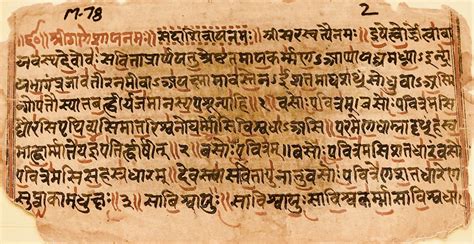 M-78 2
॥ श्रीगणेशाय नमः॥ सदाशिवाय नमः॥ श्रीसरस्वत्यै नमः॥ इषे त्वोर्जे त्वा वा
यवस्थ देवो वः सविता प्रार्पयतु श्रेष्ठतमाय कर्मण आप्यायध्वमघ्न्या इन्द्रा
य भागं प्रजावतीरनमीवा अयक्ष्मा मा वस्तेन ईशत माघशंसो ध्रुवा अस्मि
न्गोपतौ स्यात बह्वीर्यजमानस्य पशून्पाहि ॥१॥ वसोः पवित्रमसि
द्यौरसि पृथिव्यसि मातरिश्वनो घर्मोसि विश्वधा असि॥ परमेण धाम्ना दृंहस्व
मा ह्वार्मा ते यज्ञपतिर्ह्वार्षीत् ॥२॥ वसोः पवित्रमसि शतधारं वसोः
पवित्रमसि सहस्रधारम्॥ देवस्त्वा सविता पुनातु वसोः पवित्रेण शतधारेण
सुप्वा कामधुक्षः॥३॥ सा विश्वायुः सा विश्वकर्मा सा विश्वधा